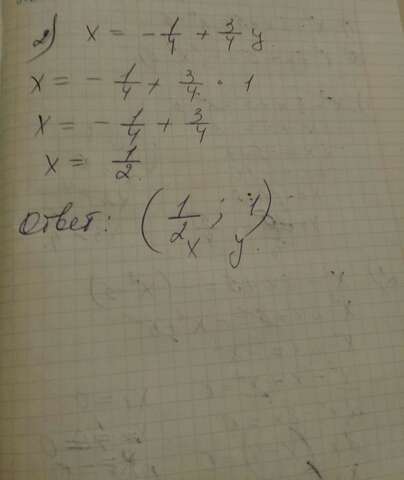 2) x = - 1/4 + 3/4 y
x = - 1/4 + 3/4 · 1
x = - 1/4 + 3/4
x = 1/2
Ответ: (1/2 ; 1)
x y